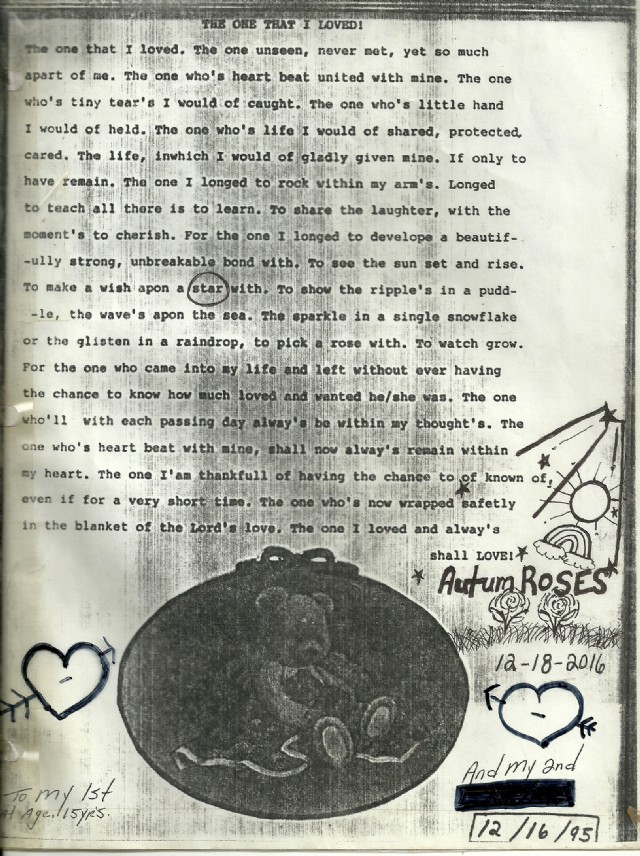 THE ONE THAT I LOVED!
The one that I loved. The one unseen, never met, yet so much
apart of me. The one who's heart beat united with mine. The one
who's tiny tear's I would of caught. The one who's little hand
I would of held. The one who's life I would of shared, protected,
cared. The life, inwhich I would of gladly given mine. If only to
have remain. The one I longed to rock within my arm's. Longed
to teach all there is to learn. To share the laughter, with the
moment's to cherish. For the one I longed to develope a beautif-
-ully strong, unbreakable bond with. To see the sun set and rise.
To make a wish apon a star with. To show the ripple's in a pudd-
-le, the wave's apon the sea. The sparkle in a single snowflake
or the glisten in a raindrop, to pick a rose with. To watch grow.
For the one who came into my life and left without ever having
the chance to know how much loved and wanted he/she was. The one
who'll with each passing day alway's be within my thought's. The
one who's heart beat with mine, shall now alway's remain within
my heart. The one I'am thankfull of having the chance to of known of,
even if for a very short time. The one who's now wrapped safetly
in the blanket of the Lord's love. The one I loved and alway's
shall LOVE!
Autum ROSES
12-18-2016
And my 2nd
To my 1st
at Age. 15yrs.
12/16/95